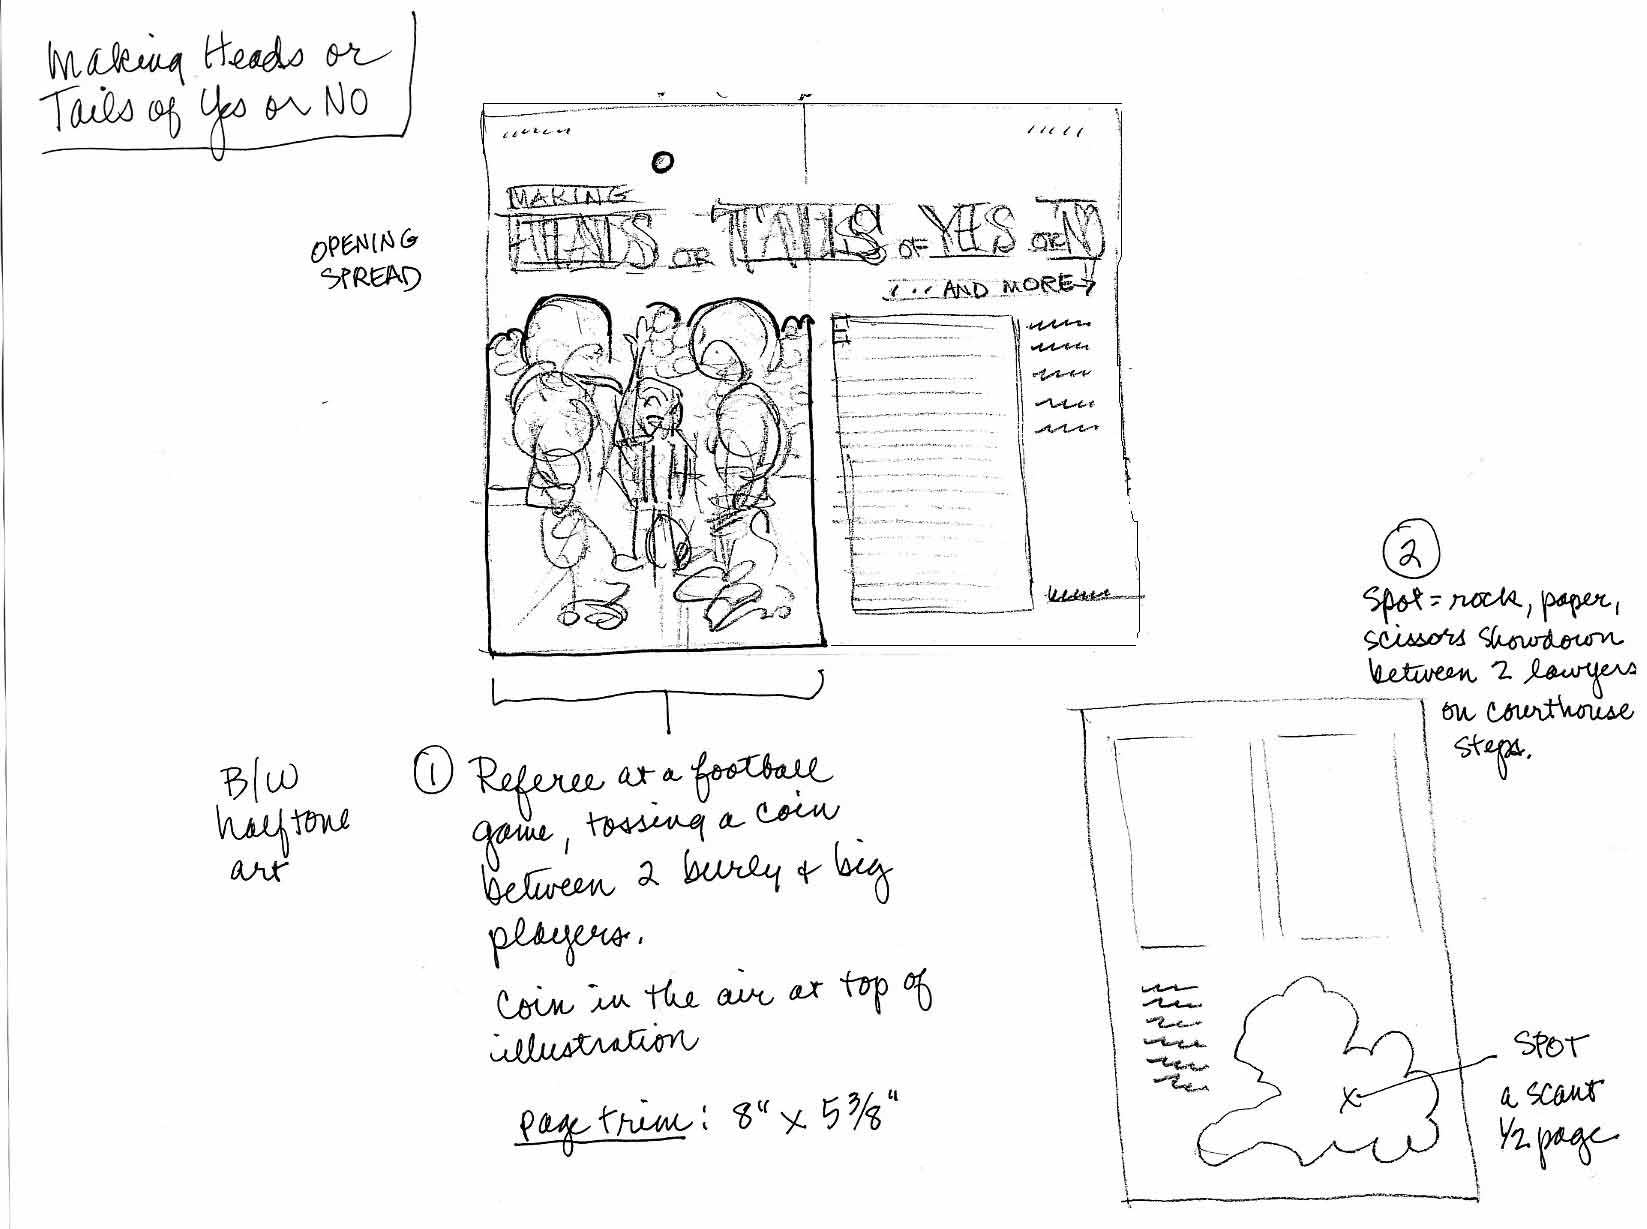 Making Heads or
Tails of Yes or NO
OPENING
SPREAD
MAKING
HEADS OR TAILS OF YES OR NO
... AND MORE
B/W
halftone
art
1 Referee at a football
game, tossing a coin
between 2 burly + big
players.
Coin in the air at top of
illustration
page trim: 8" x 5 3/8"
2
Spot = rock, paper,
scissors showdown
between 2 lawyers
on courthouse
steps.
SPOT
a scant
1/2 page